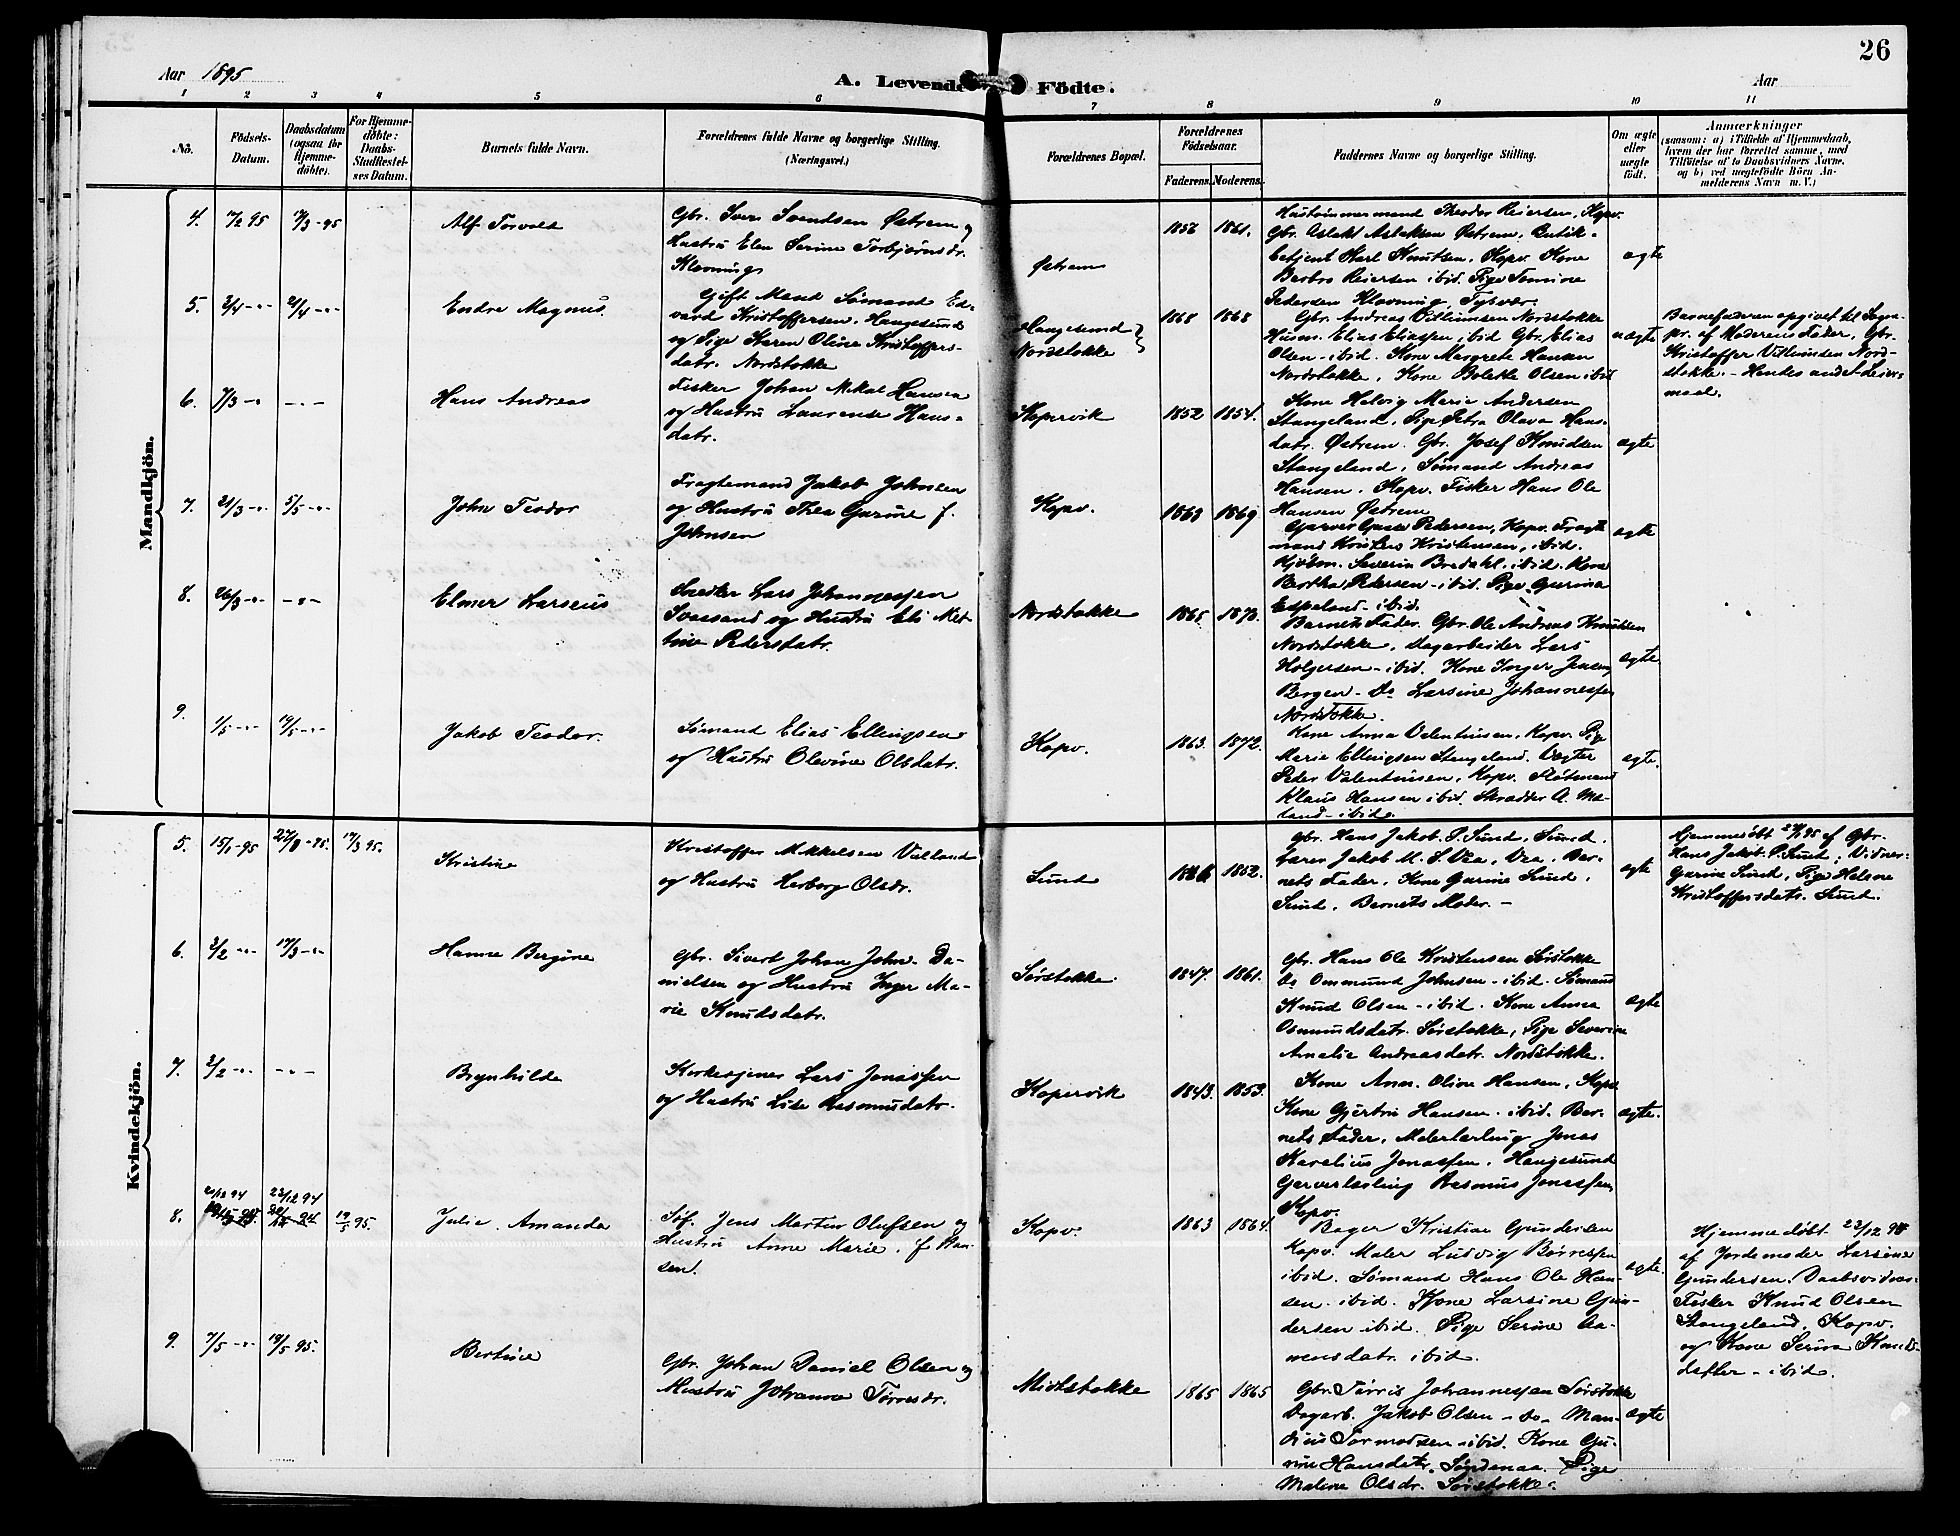 26
Aar 1895
A. Levende Födte.
Aar
1 2 3 4 5 6 7 8 9 10 11
No.
Födsels-
Datum.
Daabsdatum
(ogsaa for
Hjemme-
döbte).
For Hjemme-
döbte:
Daabs-
Stadfæstel-
ses Datum.
Barnets fulde Navn.
Forældrenes fulde Navne og borgerlige Stilling.
(Næringsvei.)
Forældrenes Bopæl.
Forældrenes
Födselsaar.
Faderens. Moderens.
Faddernes Navne og borgerlige Stilling.
Om ægte
eller
uægte
födt.
Anmærkninger
(saasom: a) i Tilfælde af Hjemmedaab,
hvem der har forrettet samme, med
Tilföielse af to Daabsvidners Navne,
og b) ved uægtefödte Börn An-
melderens Navn m. V.)
Mandkjön.
4.
Alf Torvald
Gbr. Sven Svendsen Østrem og
Hustru Elen Serine Torbjørnsdr.
Klovning
Østrem
1861.
Hustømmermand Theodor Reiersen, Kopv.
Gbr. Aslak Aslaksen Østrem, Butik-
betjent Karl Knutsen, Kopv. Kone
Berbro Reiersen ibid. Pige Tomine
Pedersen Klovning, Tysvær.
ægte
5. 2/4 -"- 21/4 -"-
Endre Magnus
Gift Mand Sømand Ed-
vard Kristoffersen, Haugesund
og Pige Karen Oline Kristoffers-
datr. Nordstokke
Haugesund
Nordstokke
1868 1868
Gbr. Andreas Villumsen Nordstokke
Husm. Elias Eliassen, ibid Gbr. Elias
Olsen - ibid. Kone Margrete Hansen
Nordstokke, Kone Bolette Olsen ibid
uægte
Barnefaderen opgivet til Sogne-
pr. af Moderens Fader, Gbr.
Kristoffer Villumsen Nord-
stokke. - Hendes andet Leier-
maal.
6. 7/3 -"- -"-
Hans Andreas
Fisker Johan Mikal Hansen
og Hustru Laurense Hans-
datr.
Kopervik
1852 1854.
Kone Helvig Marie Andersen
Stangeland, Pige Petra Olava Hans-
datr. Østrem. Gbr. Josef Knudsen
Stangeland, Sømand Andreas
Hansen, Kopv. Fisker Hans Ole
Hansen Østrem
ægte
7. 21/3 -"- 5/5 -"-
John Teodor
Fragtemand Jakob Johnsen
og Hustru Thea Gurine f.
Johnsen
Kopv.
1868 1869
Pedersen, Kopv. Fragt-
mand Kristensen, ibid.
Kjøbm. Severin Bredahl, ibid. Kone
Bertha Pedersen - ibid. Pige Gurina
Espeland - ibid.
ægte
8. 26/3 -"- -"-
Elmer Larseus
Snedker Lars Johannessen
Svassand og Hustru Eli Met-
tine Pedersdatr.
Nordstokke
1865 1873.
Barnets Fader. Gbr. Ole Andreas Knudsen
Nordstokke, Dagarbeider Lars
Holgersen - ibid. Kone Inger Jensen
Bergen - Do Larsine Johannessen
Nordstokke.
ægte
9. 1/5 -"- 19/5 -"-
Jakob Teodor.
Sømand Elias Ellingsen
og Hustru Olevine Olsdatr.
Kopv.
1863. 1872.
Kone Anna Valentinsen, Kopv. Pige
Marie Ellingsen Stangeland. Vægter
Peder Valentinsen, Kopv. Flotmand
Klaus Hansen ibid. Skrædder A. Mæ-
land - ibid.
ægte.
Kvindekjön.
5. 15/1 -95
Kristine
Kristoffer Mikkelsen Valland
og Hustru Herborg Olsdr.
Sund
1852.
Gbr. Hans Jakob P. Sund, Sund.
Lærer Jakob M. S. Vea, Vea, Bar-
nets Fader, Kone Gurine Sund,
Sund, Barnets Moder. -
ægte
Hjemmedøbt af Gbr.
Hans Jakob P. Sund; Vidner:
Gurine Sund, Pige Helene
Kristoffersdatr. Sund.
6. 2/2 -"- 17/3 -"-
Hanna Bergine
Gbr. Sivert Johan John. Da-
nielsen og Hustru Inger Ma-
rie Knudsdatr.
Sørstokke
1847. 1861.
Gbr. Hans Ole Kristensen Sørstokke
Do Ommund Johnsen - ibid. Sømand
Knud Olsen - ibid. Kone Anna
Osmundsdatr. Sørstokke, Pige Severine
Amalie Andreasdatr. Nordstokke.
ægte
7. 2/2 -"- -"-
Brynhilda
Kirkesjener Lars Jonassen
og Hustru Lise Rasmusdatr.
Kopervik
1843. 1853.
Kone Ann. Oline Hansen, Kopv.
Kone Gjertru Hansen - ibid. Bar-
nets Fader, Malerlærling Jonas
Karelius Jonassen, Haugesund
Garverlærling Rasmus Jonassen,
Kopv.
ægte.
8. 20/12 94 23/12 94 19/5 95.
Julie Amanda
Søf. Jens Martin Olufsen og
Hustru Anne Marie, f. Han-
sen.
Kopv.
1863 1864.
Bager Kristian Gundersen
Kopv. Maler Ludvig Børresen
ibid. Sømand Hans Ole Han-
sen - ibid. Kone Larsine Gun-
dersen ibid. Pige Serine Aa-
mensdatr. ibid.
ægte.
Hjemmedøbt 23/12 94
af Jordemoder Larsine
Gundersen. Daabsvidner:
Fisker Knud Olsen
Stangeland, Kopv.
og Kone Serina Knuds-
datter - ibid.
9. 7/5 -"- 19/5 95.
Bertine
Gbr. Johan Daniel Olsen og
Hustru Johanna Tørresdr.
Midtstokke
1865 1865
Gbr. Tørris Johannessen Sørstokke
Dagarb. Jakob Olsen - do - Man-
dius Tormodsen - ibid. Kone Gu-
rine Hansdatr. Søndenaa. Pige
Maline Olsdr. Sørstokke.
ægte